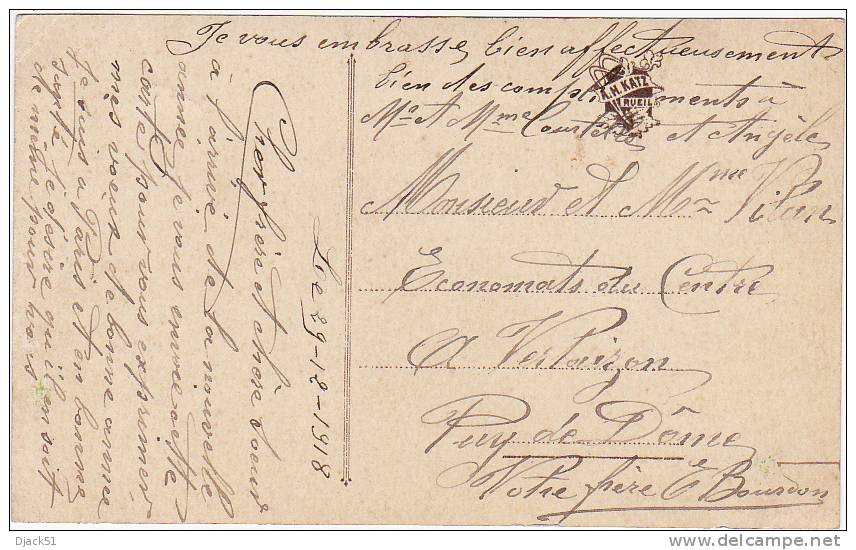 Le 29-12-1918
Cher frère et chère Sœur
à l'arrivé de la nouvelle
année Je vous envoie cette
carte pour vous exprimer
mes vœux de bonne année
Je suis a Paris et en bonne
santé Je désire qu'il en soit
de même pour vous
Je vous embrasse bien affectueusement
bien des compliments à
Mr et Mme et Angèle
Monsieur et Mme Vilan
Economats du Centre
A Vertaizon
Puy de Dôme
Votre frère E Bourdon
A.H. KATZ
RUEIL
Djack51
delcampe.net